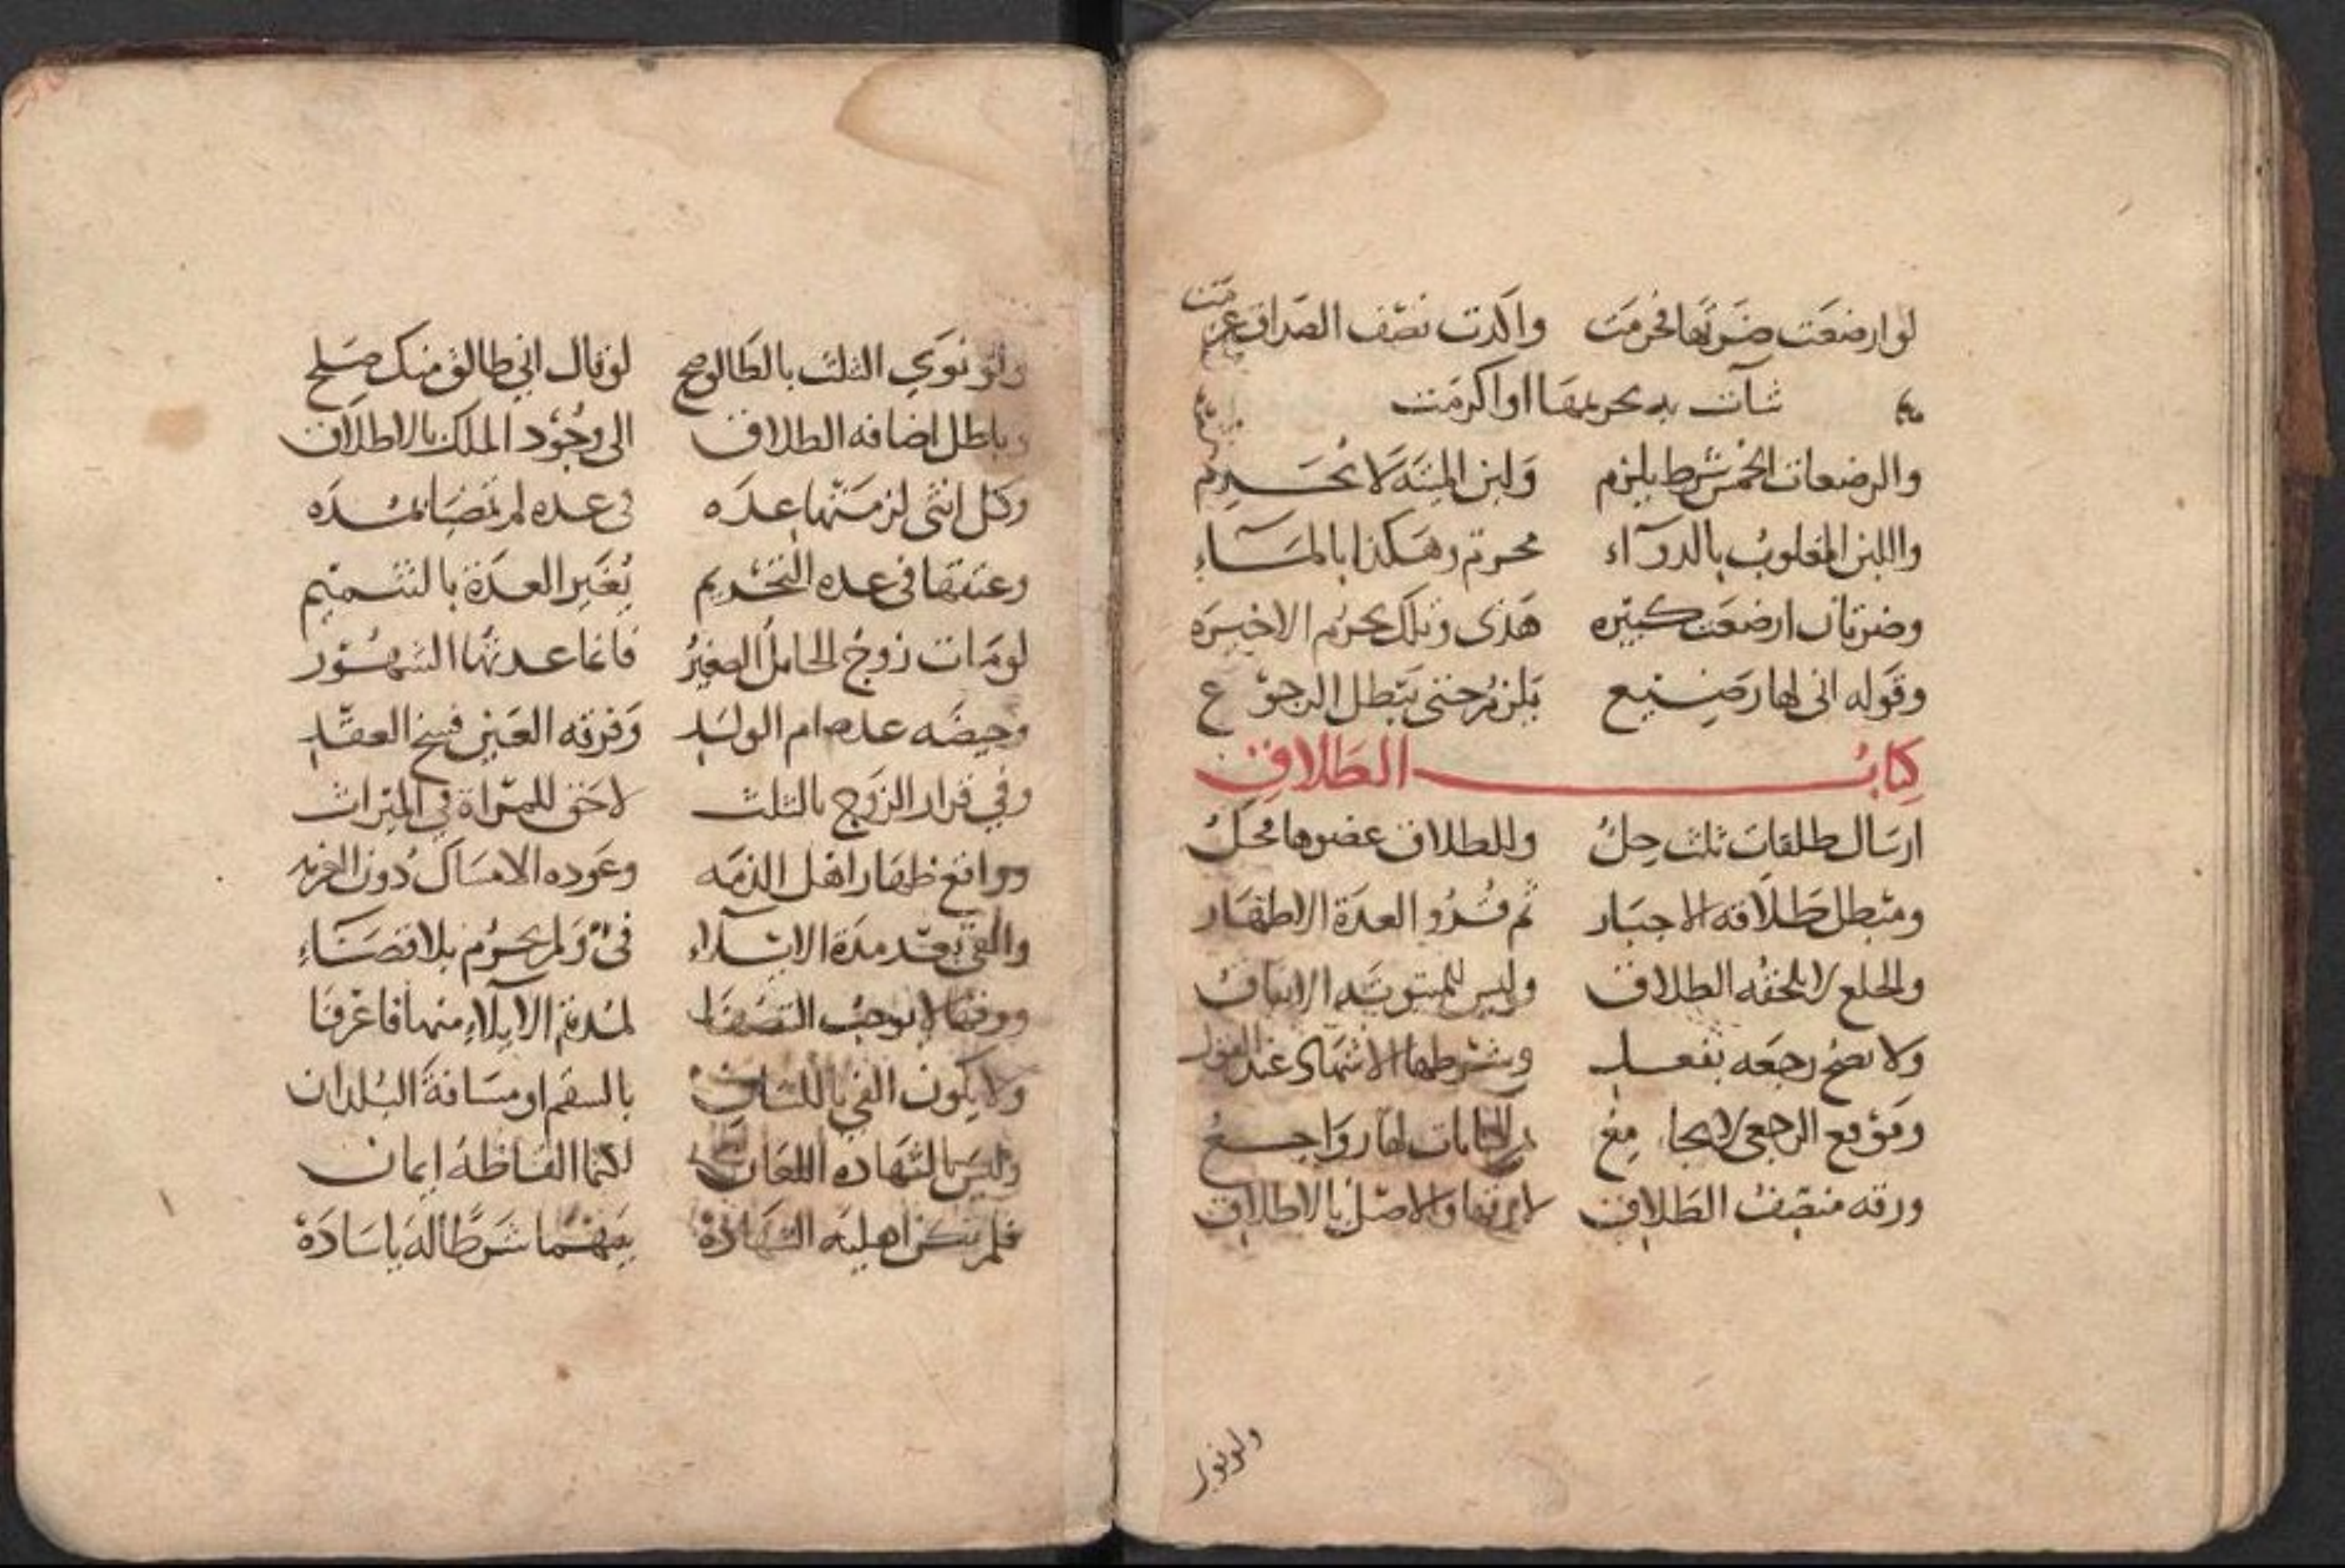 لو ارضعت ضرتها فحرمت واكدت نصف الصداق غرمت
شات به تحريمها او اكرمت
والرضعات الخمس شرط يلزم ولبن الميتة لا يحرم
واللبن المغلوب بالدوآء محرم وهكذا بالمآء
وضرتان ارضعت كبيره هذى وتلك يحرم الاخيره
وقوله انى لها رضيع يلزم حتى يبطل الرجوع
كتاب الطلاق
ارسال طلقات ثلث حل وللطلاق عضوها محل
ومبطل طلاقه الاجبار ثم قرؤ العدة الاطهار
والخلع لا يلحقه الطلاق وليس للمبتوته الانفاق
ولا تصح رجعه بفعل وشرطها الاشهاد عند
وموقع الرجعى لا يجامع لها رواجع
ورقه منصف الطلاق لا رقها والاصل بالاطلاق
ولو نوى
ولو نوى الثلث بالطالق صح لو قال انى طالق منك صلح
وباطل اضافه الطلاق الى وجود الملك بالاطلاق
وكل انثى لزمتها عده فى عده لم تمضيا بمده
وعتقها فى عده التحريم يغير العدة بالتتميم
لو مات زوج الحامل الصغير فانما عدتها الشهور
وحيضه عده ام الولد وفرقه العنين فسخ العقد
وفي فرار الزوج بالثلث لا حق للمراة في الميراث
وواقع ظهار اهل الذمه وعوده الامساك دون العزمه
والفى بعد مدة الايلاء فى ولم يحرم بلا قضاء
ورقها لا يوجب التنصفا لمدة الايلاء منها فاعرفا
ولا يكون الفى باللسان بالسقم او مسافة البلدان
وليس بالشهاده اللعان لكنما الفاظه ايمان
فلم تكن اهليه الشهادة بينهما شرطا له يا سادة